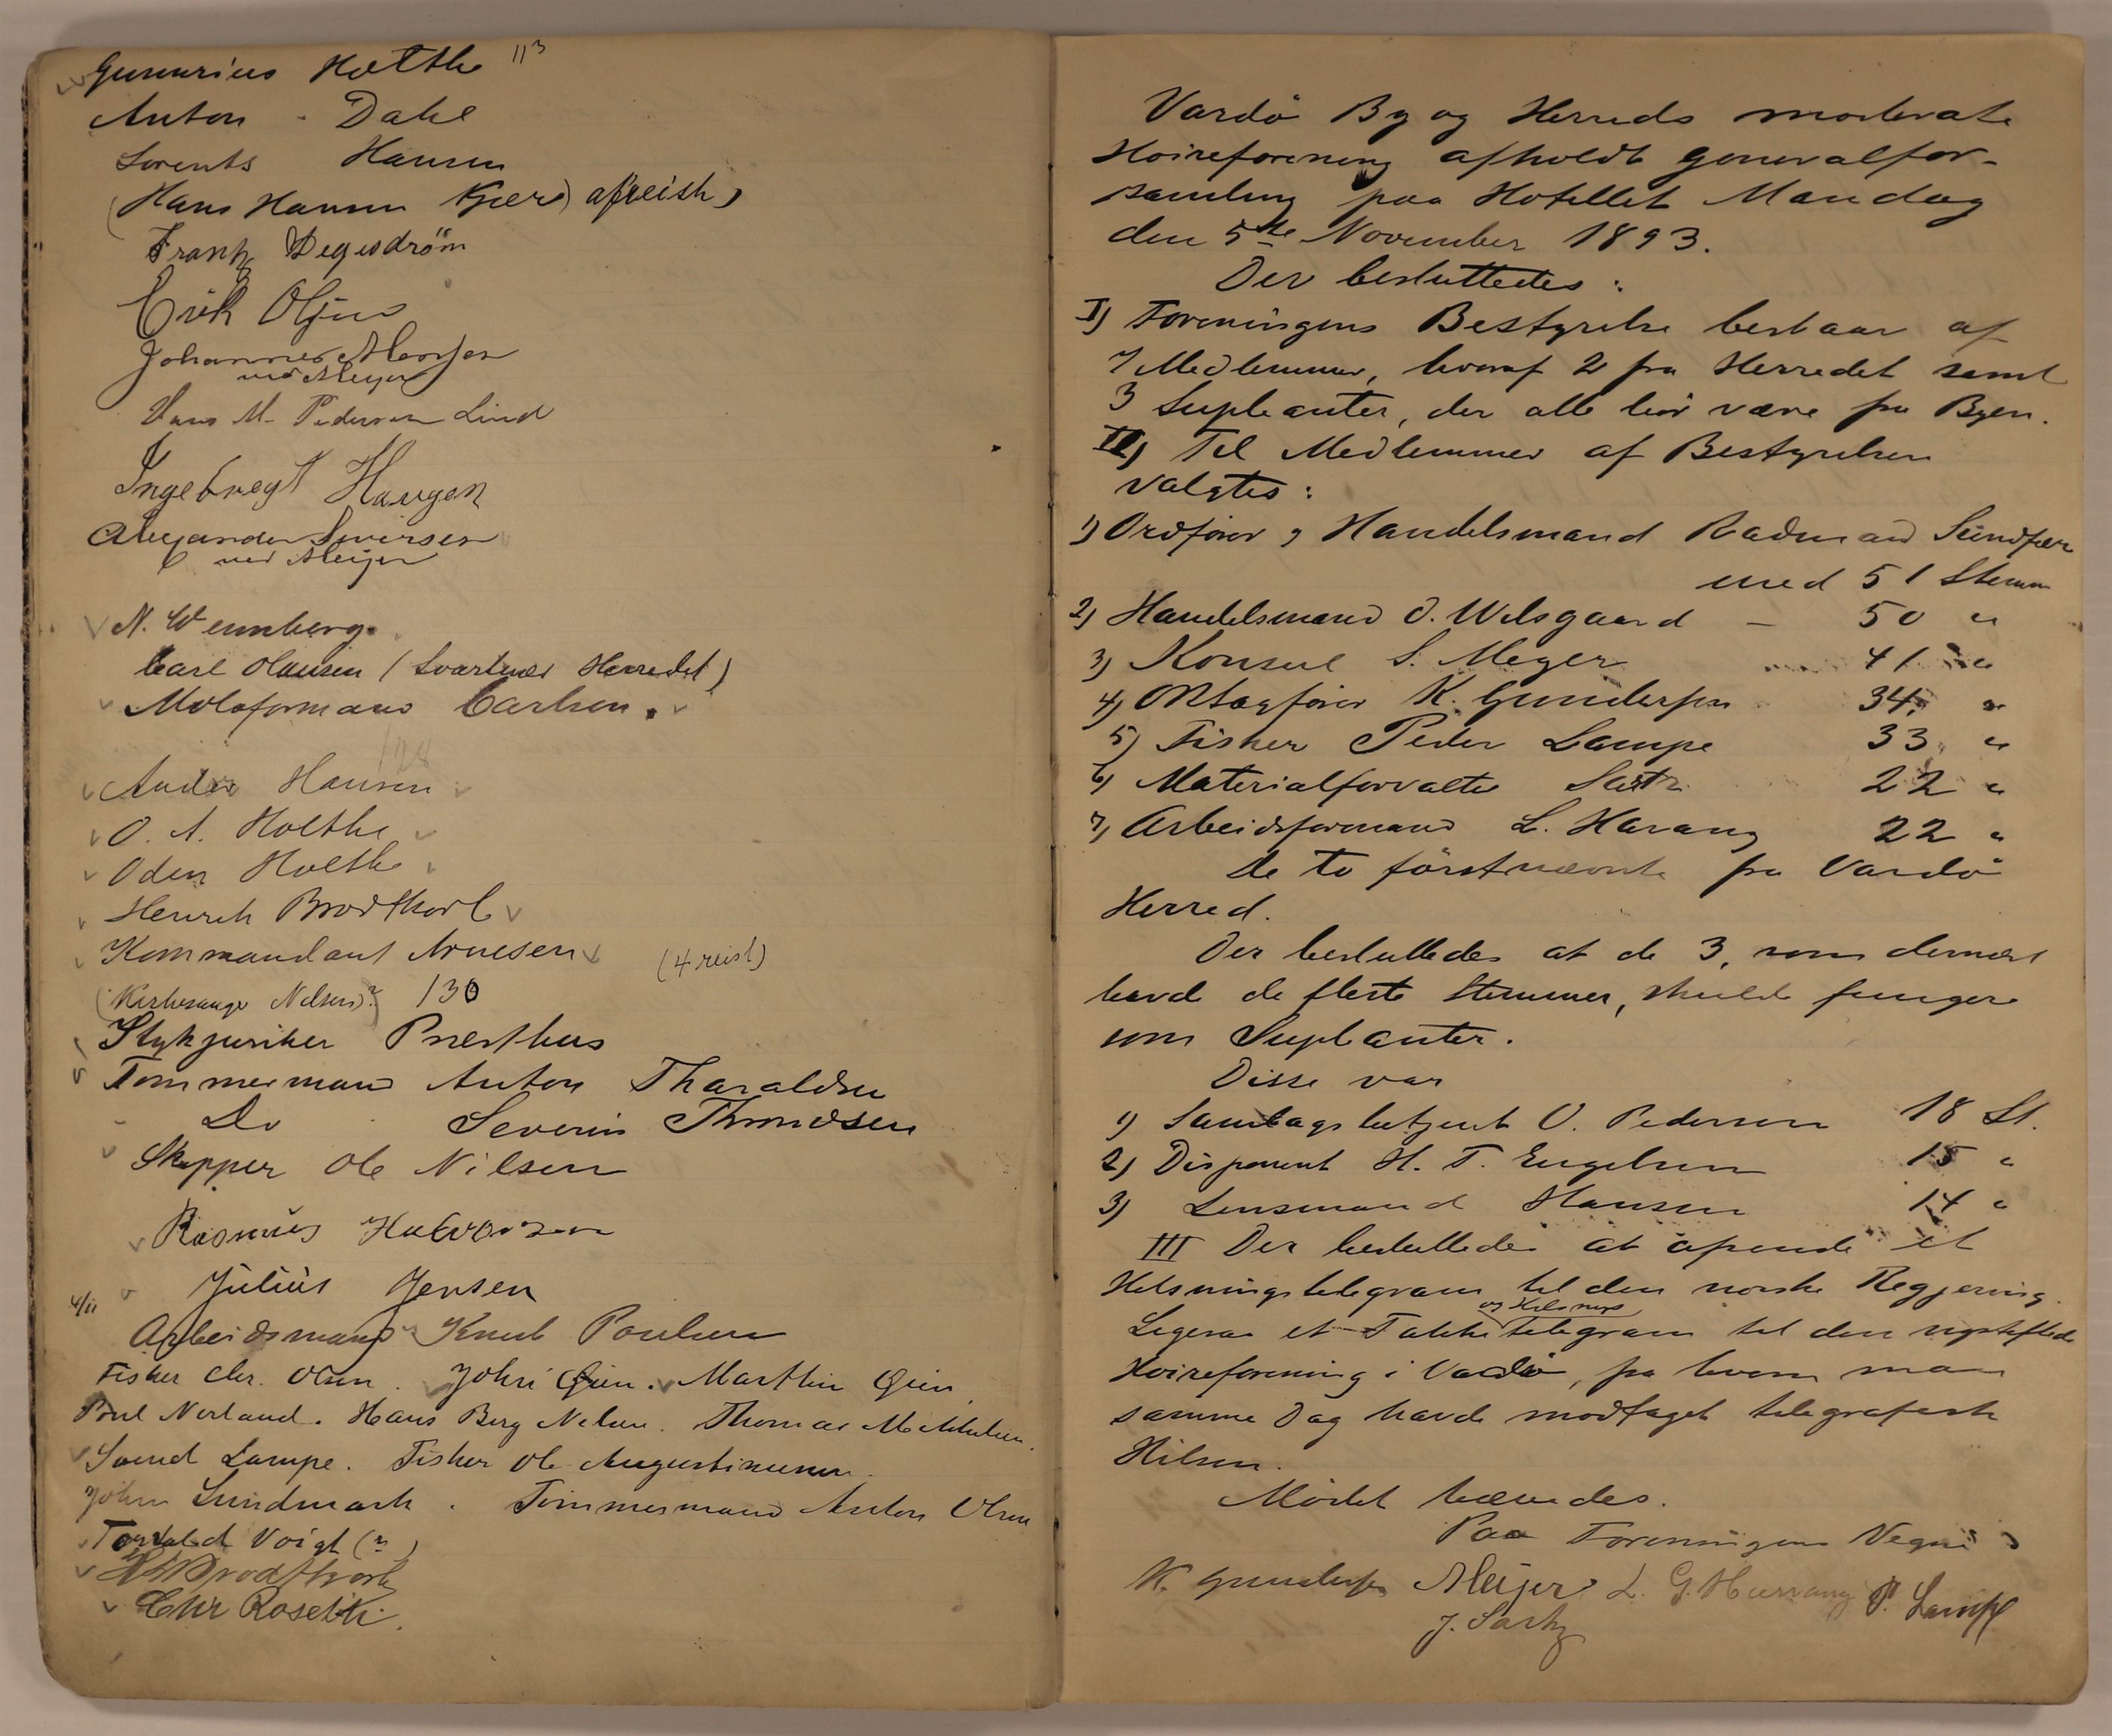 Gunnerius Holthe 113
Anton - Dahl
Lorents Hansen
(Hans Hansen Kjær) afreist)
Frank Degesdrøm
Erik Olsen
Johannes Hansen
ved Meyer
Hans M. Pedersen Lind
Ingebregt Haugen
Alexander Siversen
ved Meijer
N. Wennberg.
Carl Olausen (Svartnes Herredet)
Moloformand Carlsen.
128
Hansen
O. A. Holthe
Oden Holthe
Henrik Brodtkorb
Kommandant Arnesen (4 reist)
(Kirkesanger Nilsen)? 130
Stykjunker Præsthus
Tømmermand Anton Tharaldsen
Do Severin Thronsen
Skipper Ole Nilsen
Rasmus Halvorsen
Julius Jensen
4/11
Arbeidsmand Knut Poulsen
Fisker Chr. Olsen. Johri Qien. Marthin Qien.
Poul Norland. Hans Berg Nelsen. Thomas Mikkelsen.
Svend Lampe. Fisker Ole Augustinusen.
John Sundmark. Tømmermand Anton Olsen
Voigt (?)
Brodtkorb
Chr Roseth.
Vardø By og Herreds moderate
Høireforening afholdt Generalfor-
samling paa Hotellet Mandag
den 5te November 1893.
Der besluttedes:
I) Foreningens Bestyrelse bestaar af
7 Medlemmer, hvoraf 2 fra Herredet samt
3 Supleanter, der alle bør være fra Byen.
II) Til Medlemmer af Bestyrelsen
valgtes:
1) Ordfører og Handelsmand Radmand Sundfær
med 51 Stemm
2) Handelsmand O. Wilsgaard — 50 "
3) Konsul S. Meyer 41 "
4) K. Gundersen 34. "
5) Fisker Peder Lampe 33 "
6) Materialforvalter Sartz 22 "
7) Arbeidsformand L. Harang 22 "
De to førstnævnte fra Vardø
Herred.
Der besluttedes at de 3, som dernæst
havde de fleste Stemmer, skulde fungere
som Supleanter.
Disse var
1) Samlagsbetjent O. Pedersen 18 St.
2) Disponent H. T. Engelsen 15 "
3) Lensmand Hansen 14 "
III Der besluttedes at afsende et
Hilsningstelegram til den norske Regjering.
og Hilsnings
Ligesaa et Takke telegram til den nystiftede
Høireforening i Vadsø, fra hvem man
samme Dag havde modtaget telegrafisk
Hilsen.
Mødet hævedes.
Paa Foreningens Vegne
K. Gundersen Meijer L. G. Harrang P. Lampe
J. Sartz